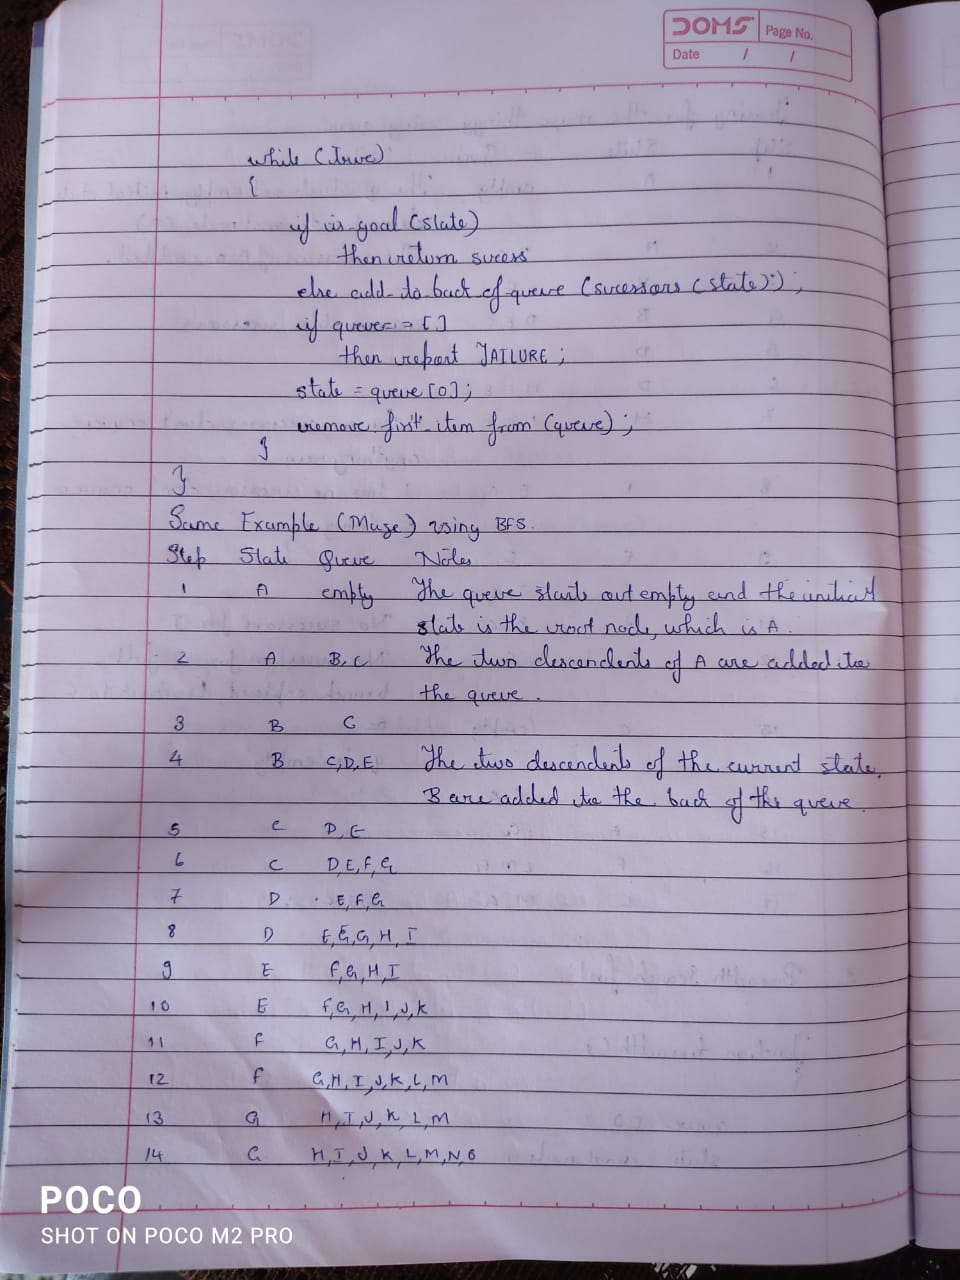 DOMS Page No.
Date / /
while (True)
{
if is-goal (state)
then return sucess
else add-to-back of-queue (sucessors (state));
if queue = = [ ]
then report FAILURE ;
state = queue [0] ;
remove-first-item from (queue) ;
}
}
Same Example (Maze) using BFS.
Step State Queue Notes
1 A empty The queue starts out empty and the initial
state is the root node, which is A.
2 A B, C The two descendents of A are added to
the queue.
3 B C
4 B C,D,E The two descendents of the current state.
B are added to the back of the queue.
5 C D, E
6 C D,E,F,G
7 D E,F,G
8 D F,G,H,I
9 E F,G,H,I
10 E F,G,H,I,J,K
11 F G,H,I,J,K
12 F G,H,I,J,K,L,M
13 G H,I,J,K,L,M
14 G H,I,J,K,L,M,N,O
POCO
SHOT ON POCO M2 PRO